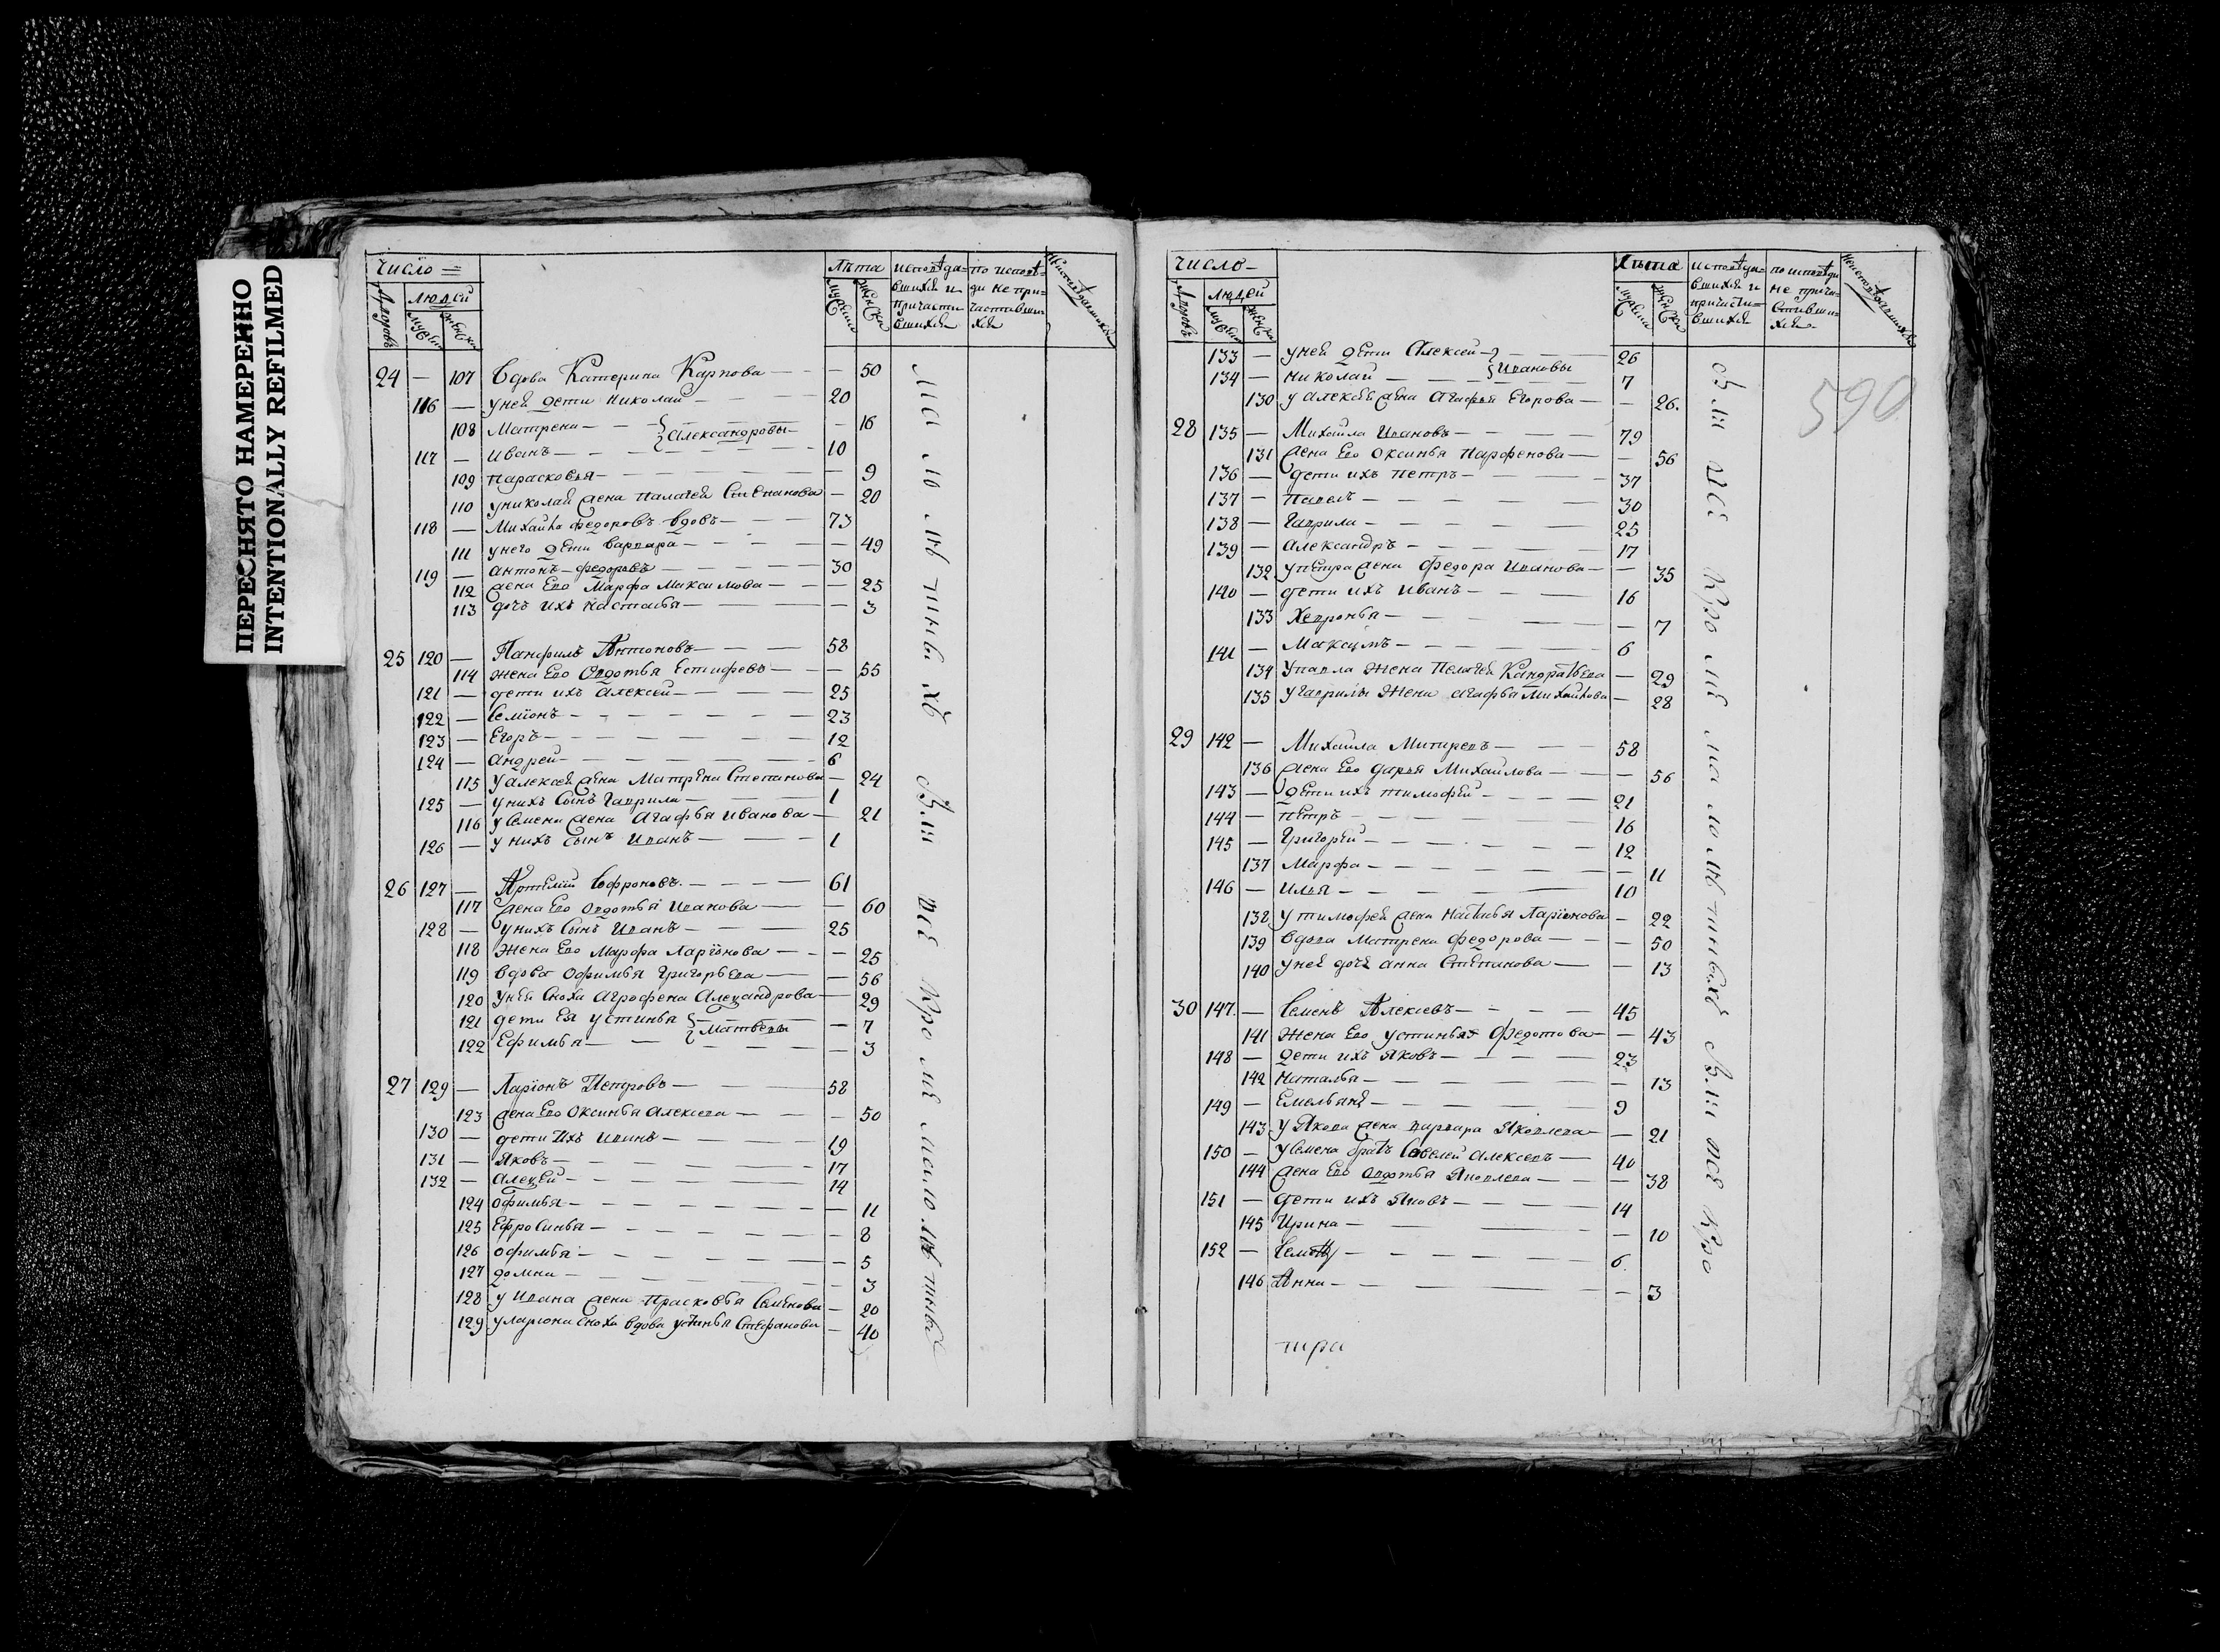 ПЕРЕСНЯТО НАМЕРЕННО
INTENTIONALLY REFILMED
число = лѣта исповѣда= по исповѣ=
людей вшихся и ди не при=
причасти частивши
вшихся хся
24 — 107 Вдова Катерина Карпова — — 50
116 — у ней дети Николай — 20
108 Матрена — Александровы — — 16
117 — Иванъ — 10
109 Парасковья — — 9
110 у николая жена Палагея Степанова — 20
118 — Михайло Федоровъ вдовъ — 73
111 у него дети варвара — — 49
119 — антонъ — федоровъ — 30
112 жена Ево Марфа Максимова — — 25
113 дочь ихъ настасья — — 3
25 120 — Панфилъ Антоновъ — 58
114 жена Ево Овдотья Естифева — — 55
121 — дети ихъ Алексей — 25
122 — Семïонъ — 23
123 — Егоръ — 12
124 — андрей — 6
115 у алексея жена Матрена Степанова — 24
125 — у нихъ Сынъ Гаврила — 1
116 у Семена жена Агафья Иванова — 21
126 — у нихъ Сынъ Иванъ — 1
26 127 — Артемïй Софроновъ — 61
117 жена Ево Овдотья Иванова — — 60
128 — у нихъ Сынъ Иванъ — 25
118 жена Ево Марфа Ларïонова — — 25
119 вдова Офимья Григорьева — — 56
120 у нея Сноха Агрофена Алеѯандрова — 29
121 дети Ея устинья Матвевы — 7
122 Ефимья — — 3
27 129 — Ларïонъ Петровъ — 58
123 жена Ево Оксинья Алексева — — 50
130 — дети Ихъ Иванъ — 19
131 — Яковъ — 17
132 — Алеѯей — 14
124 офимья — — 11
125 Ефросинья — — 8
126 офимья — — 5
127 домна — — 3
128 у Ивана жена Прасковья Семенова — 20
129 у лариона сноха вдова устинья Стефанова — 40
число — лѣта исповѣда= по исповѣди
людей вшихся и не прича=
причасти= стивши=
вшихся хся
590
133 — у ней дети Алексей — Ивановы 26
134 — николай — 7
130 у алексея жена Агафья Егорова — — 26.
28 135 — Михайла Ивановъ — 79
131 жена Ево Оксинья Парфенова — — 56
136 — дети ихъ Петръ — 37
137 — Павелъ — 30
138 — Гаврила — 25
139 — Александръ — 17
132 у петра жена Федора Иванова — — 35
140 — дети ихъ Иванъ — 16
133 Хевронья — — 7
141 — Максимъ — 6
134 у павла жена Пелагея Кандратьева — 29
135 у гаврилы жена агафья Михайлова — 28
29 142 — Михайла Митиревъ — 58
136 жена Ево дарья Михайлова — — 56
143 — дети ихъ тимофей — 21
144 — Петръ — 16
145 — Григорей — 12
137 Марфа — — 11
146 — илья — 10
138 у тимофея жена настасья Ларïонова — 22
139 вдова Матрена федорова — — 50
140 у ней дочь анна Степанова — — 13
30 147. — Семенъ Алексевъ — 45
141 Жена Ево устинья Федотова — — 43
148 — дети ихъ Яковъ — 23
142 наталья — — 13
149 — Емельянъ — 9
143 у Якова жена варвара Яковлева — — 21
150 — у Семена братъ Савелей Алексевъ — 40
144 жена Ево Овдотья Яковлева — — 38
151 — дети ихъ Яковъ — 14
145 Ирина — — 10
152 — — 6.
146 Анна — — 3